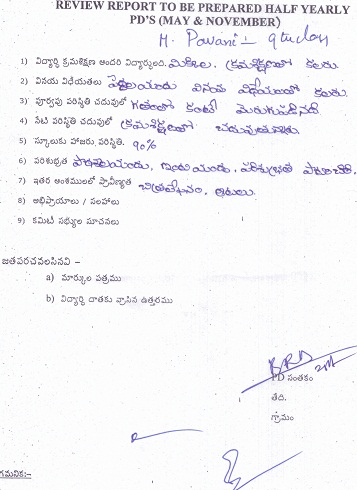 REVIEW REPORT TO BE PREPARED HALF YEARLY
PD'S (MAY & NOVEMBER)
M. Pavani - 9
1) విద్యార్ధి క్రమశిక్షణ అందరి విద్యార్థులంది. క్రమశిక్షణలో కలరు.
2) వినయ విధేయతలు పెద్దలయందు వినయ విధేయలతో కలరు
3) పూర్వపు పరిస్థితి చదువులో గతంలో కంటే మెరుగుపడినది
4) నేటి పరిస్థితి చదువులో క్రమశిక్షణలో చదువుతున్నారు.
5) స్కూలుకు హాజరు, పరిస్థితి. 90%
6) పరిశుభ్రత పాఠశాలయందు, ఇంటియందు, పరిశుభ్రత
7) ఇతర అంశములలో ప్రావీణ్యత చిత్రలేఖనం, ఆటలు.
8) అభిప్రాయాలు / సలహాలు
9) కమిటీ సభ్యుల సూచనలు
జతపరచవలసినవి –
a) మార్కుల పత్రము
b) విద్యార్ధి దాతకు వ్రాసిన ఉత్తరము
PD సంతకం
తేది.
గ్రామం
గమనిక:–